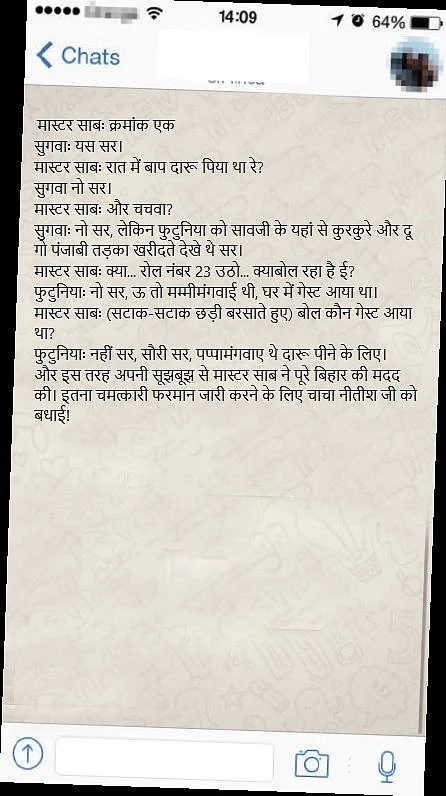 14:09
64%
Chats
मास्टर साबः क्रमांक एक
सुगवाः यस सर।
मास्टर साबः रात में बाप दारू पिया था रे?
सुगवा नो सर।
मास्टर साबः और चचवा?
सुगवाः नो सर, लेकिन फुटुनिया को सावजी के यहां से कुरकुरे और दू
गो पंजाबी तड़का खरीदते देखे थे सर।
मास्टर साबः क्या... रोल नंबर 23 उठो... क्याबोल रहा है ई?
फुटुनियाः नो सर, ऊ तो मम्मीमंगवाई थी, घर में गेस्ट आया था।
मास्टर साबः (सटाक-सटाक छड़ी बरसाते हुए) बोल कौन गेस्ट आया
था?
फुटुनियाः नहीं सर, सौरी सर, पप्पामंगवाए थे दारू पीने के लिए।
और इस तरह अपनी सूझबूझ से मास्टर साब ने पूरे बिहार की मदद
की। इतना चमत्कारी फरमान जारी करने के लिए चाचा नीतीश जी को
बधाई!